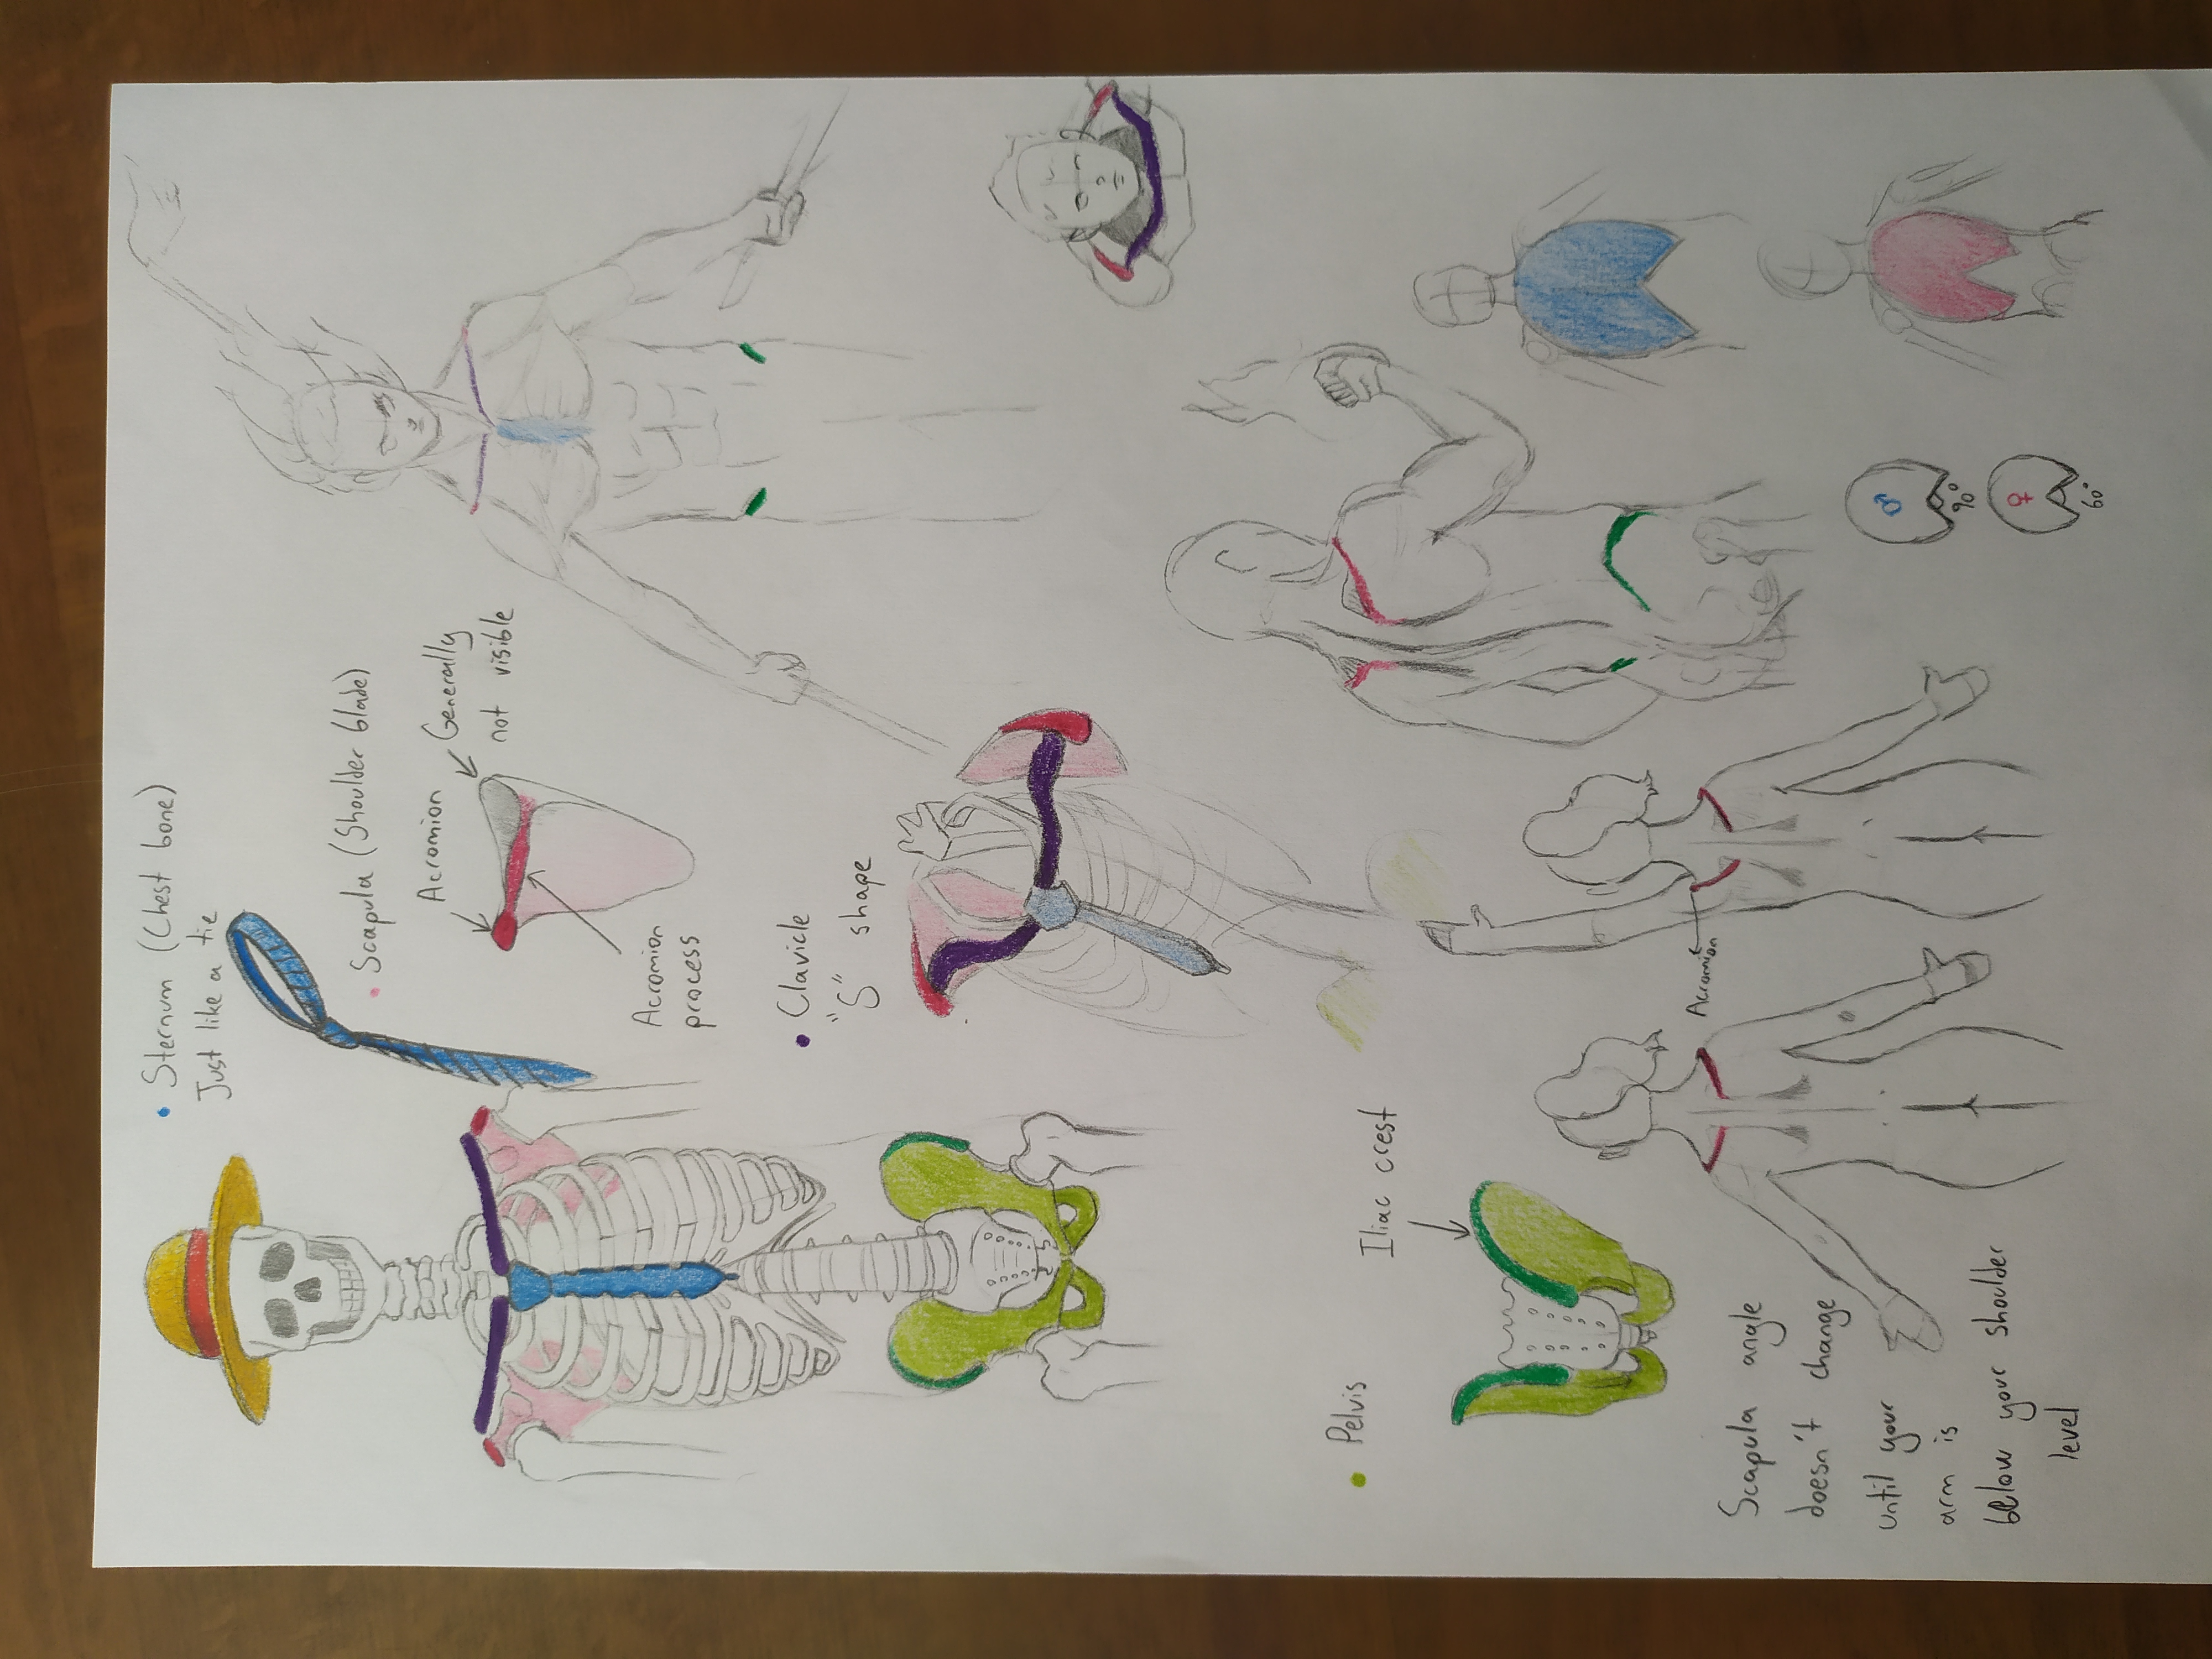 • Sternum (Chest bone)
Just like a tie
• Scapula (Shoulder blade)
Acromion
Generally
not visible
Acromion
process
• Clavicle
"S" shape
• Pelvis
Iliac crest
Acromion
Scapula angle
doesn't change
until your
arm is
below your shoulder
level
♂
90°
♀
60°